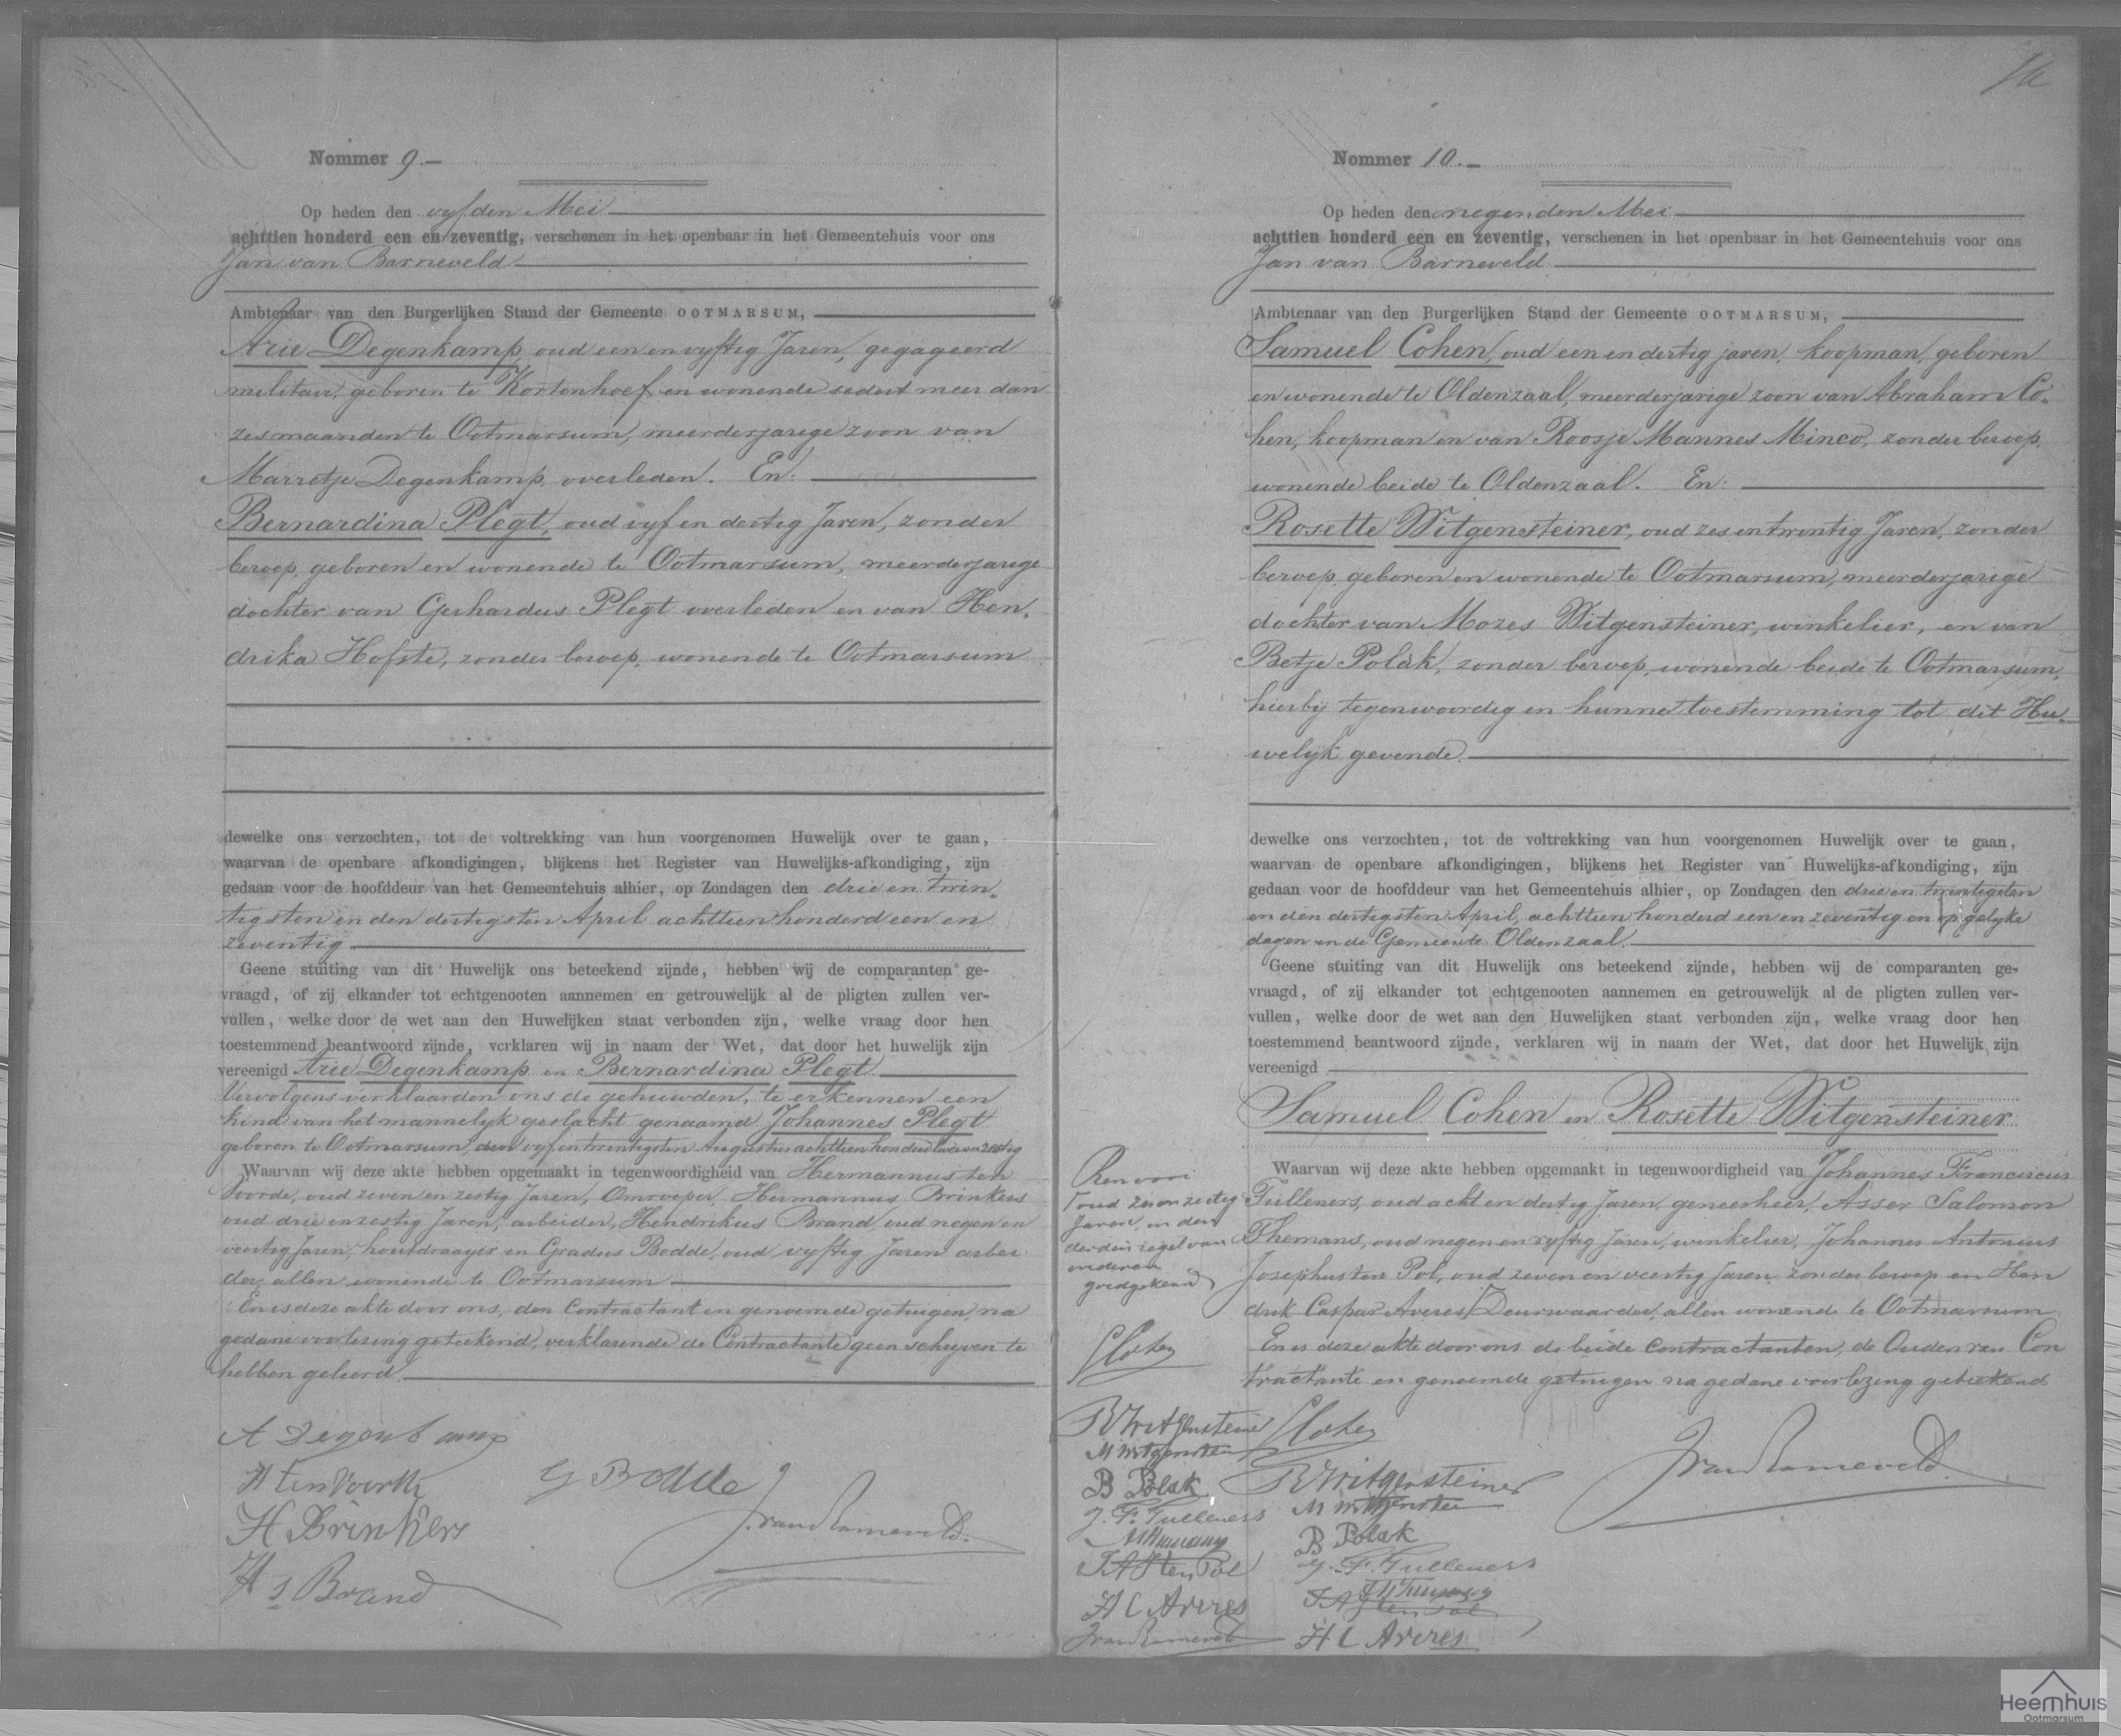 Nommer 9.—
Op heden den vyfden Mei
achttien honderd een en zeventig, verschenen in het openbaar in het Gemeentehuis voor ons
Jan van Barneveld
Ambtenaar van den Burgerlijken Stand der Gemeente OOTMARSUM,
Arie Degenkamp, oud een en vyftig Jaren, gegageerd
militair, geboren te Kortenhoef en wonende sedert meer dan
zes maanden te Ootmarsum, meerderjarige zoon van
Marretje Degenkamp, overleden. En:
Bernardina Plegt, oud vyf en dertig Jaren, zonder
beroep, geboren en wonende te Ootmarsum, meerderjarige
dochter van Gerhardus Plegt overleden en van Hen,
drika Hofste, zonder beroep, wonende te Ootmarsum
dewelke ons verzochten, tot de voltrekking van hun voorgenomen Huwelijk over te gaan,
waarvan de openbare afkondigingen, blijkens het Register van Huwelijks-afkondiging, zijn
gedaan voor de hoofddeur van het Gemeentehuis alhier, op Zondagen den drie en twin,
tigsten en den dertigsten April achttien honderd een en
zeventig
Geene stuiting van dit Huwelijk ons beteekend zijnde, hebben wij de comparanten ge-
vraagd, of zij elkander tot echtgenooten aannemen en getrouwelijk al de pligten zullen ver-
vullen, welke door de wet aan den Huwelijken staat verbonden zijn, welke vraag door hen
toestemmend beantwoord zijnde, verklaren wij in naam der Wet, dat door het huwelijk zijn
vereenigd Arie Degenkamp en Bernardina Plegt
Vervolgens verklaarden ons de gehuwden, te erkennen een
kind van het mannelyk geslacht genaamd Johannes Plegt
geboren te Ootmarsum, den vyf en twintigsten Augustus achttien honderd twee en zestig
Waarvan wij deze akte hebben opgemaakt in tegenwoordigheid van Hermannus ten
Voorde, oud zeven en zestig Jaren, Omroeper, Hermannus Brinkers
oud drie en zestig Jaren, arbeider, Hendrikus Brand, oud negen en
veertig Jaren, houtdraayer en Gradus Bodde, oud vyftig Jaren arbei
der, allen wonende te Ootmarsum
En is deze akte door ons, den Contractant en genoemde getuigen, na
gedane voorlezing geteekend, verklarende de Contractante geen schryven te
hebben geleerd.
A Degenkamp
H ten Voorde
G Bodde
H Brinkers
J. van Barneveld.
H s Brand
Nommer 10.—
Op heden den negenden Mei
achttien honderd een en zeventig, verschenen in het openbaar in het Gemeentehuis voor ons
Jan van Barneveld
Ambtenaar van den Burgerlijken Stand der Gemeente OOTMARSUM,
Samuel Cohen, oud een en dertig jaren, koopman, geboren
en wonende te Oldenzaal, meerderjarige zoon van Abraham Co,
hen, koopman en van Roosje Mannes Minco, zonder beroep,
wonende beide te Oldenzaal. En:
Rosette Witgensteiner, oud zes en twintig Jaren, zonder
beroep, geboren en wonende te Ootmarsum, meerderjarige
dochter van Mozes Witgensteiner, winkelier, en van
Betje Polak, zonder beroep, wonende beide te Ootmarsum,
hierby tegenwoordig en hunne toestemming tot dit Hu,
welyk gevende.
dewelke ons verzochten, tot de voltrekking van hun voorgenomen Huwelijk over te gaan,
waarvan de openbare afkondigingen, blijkens het Register van Huwelijks-afkondiging, zijn
gedaan voor de hoofddeur van het Gemeentehuis alhier, op Zondagen den drie en twintigsten
en den dertigsten April, achttien honderd een en zeventig en op gelyke
dagen in de Gemeente Oldenzaal.
Geene stuiting van dit Huwelijk ons beteekend zijnde, hebben wij de comparanten ge-
vraagd, of zij elkander tot echtgenooten aannemen en getrouwelijk al de pligten zullen ver-
vullen, welke door de wet aan den Huwelijken staat verbonden zijn, welke vraag door hen
toestemmend beantwoord zijnde, verklaren wij in naam der Wet, dat door het Huwelijk zijn
vereenigd
Samuel Cohen en Rosette Witgensteiner
Waarvan wij deze akte hebben opgemaakt in tegenwoordigheid van Johannes Franciscus
Tulleners, oud acht en dertig Jaren, geneesheer, Asser Salomon
Themans, oud negen en vyftig Jaren, winkelier, Johannes Antonius
Josephus ten Pol, oud zeven en veertig Jaren, zonder beroep en Hen
drik Caspar Averes, Deurwaarder, allen wonende te Ootmarsum
En is deze akte door ons de beide contractanten, de Ouders van Con
tractante en genoemde getuigen na gedane voorlezing geteekend
Renvooi
oud zes en zestig
Jaren, in den
derden regel van
onderen
goedgekeurd
SCohen
R Witgensteiner
M Witgenstein
B Polak
J. F. Tulleners
J A J ten Pol
H C Averes
J van Barneveld
SCohen
R Witgensteiner
M Witgenstein
B Polak
J. F. Tulleners
J A J ten Pol
H C Averes
J van Barneveld.
Heemhuis
Ootmarsum